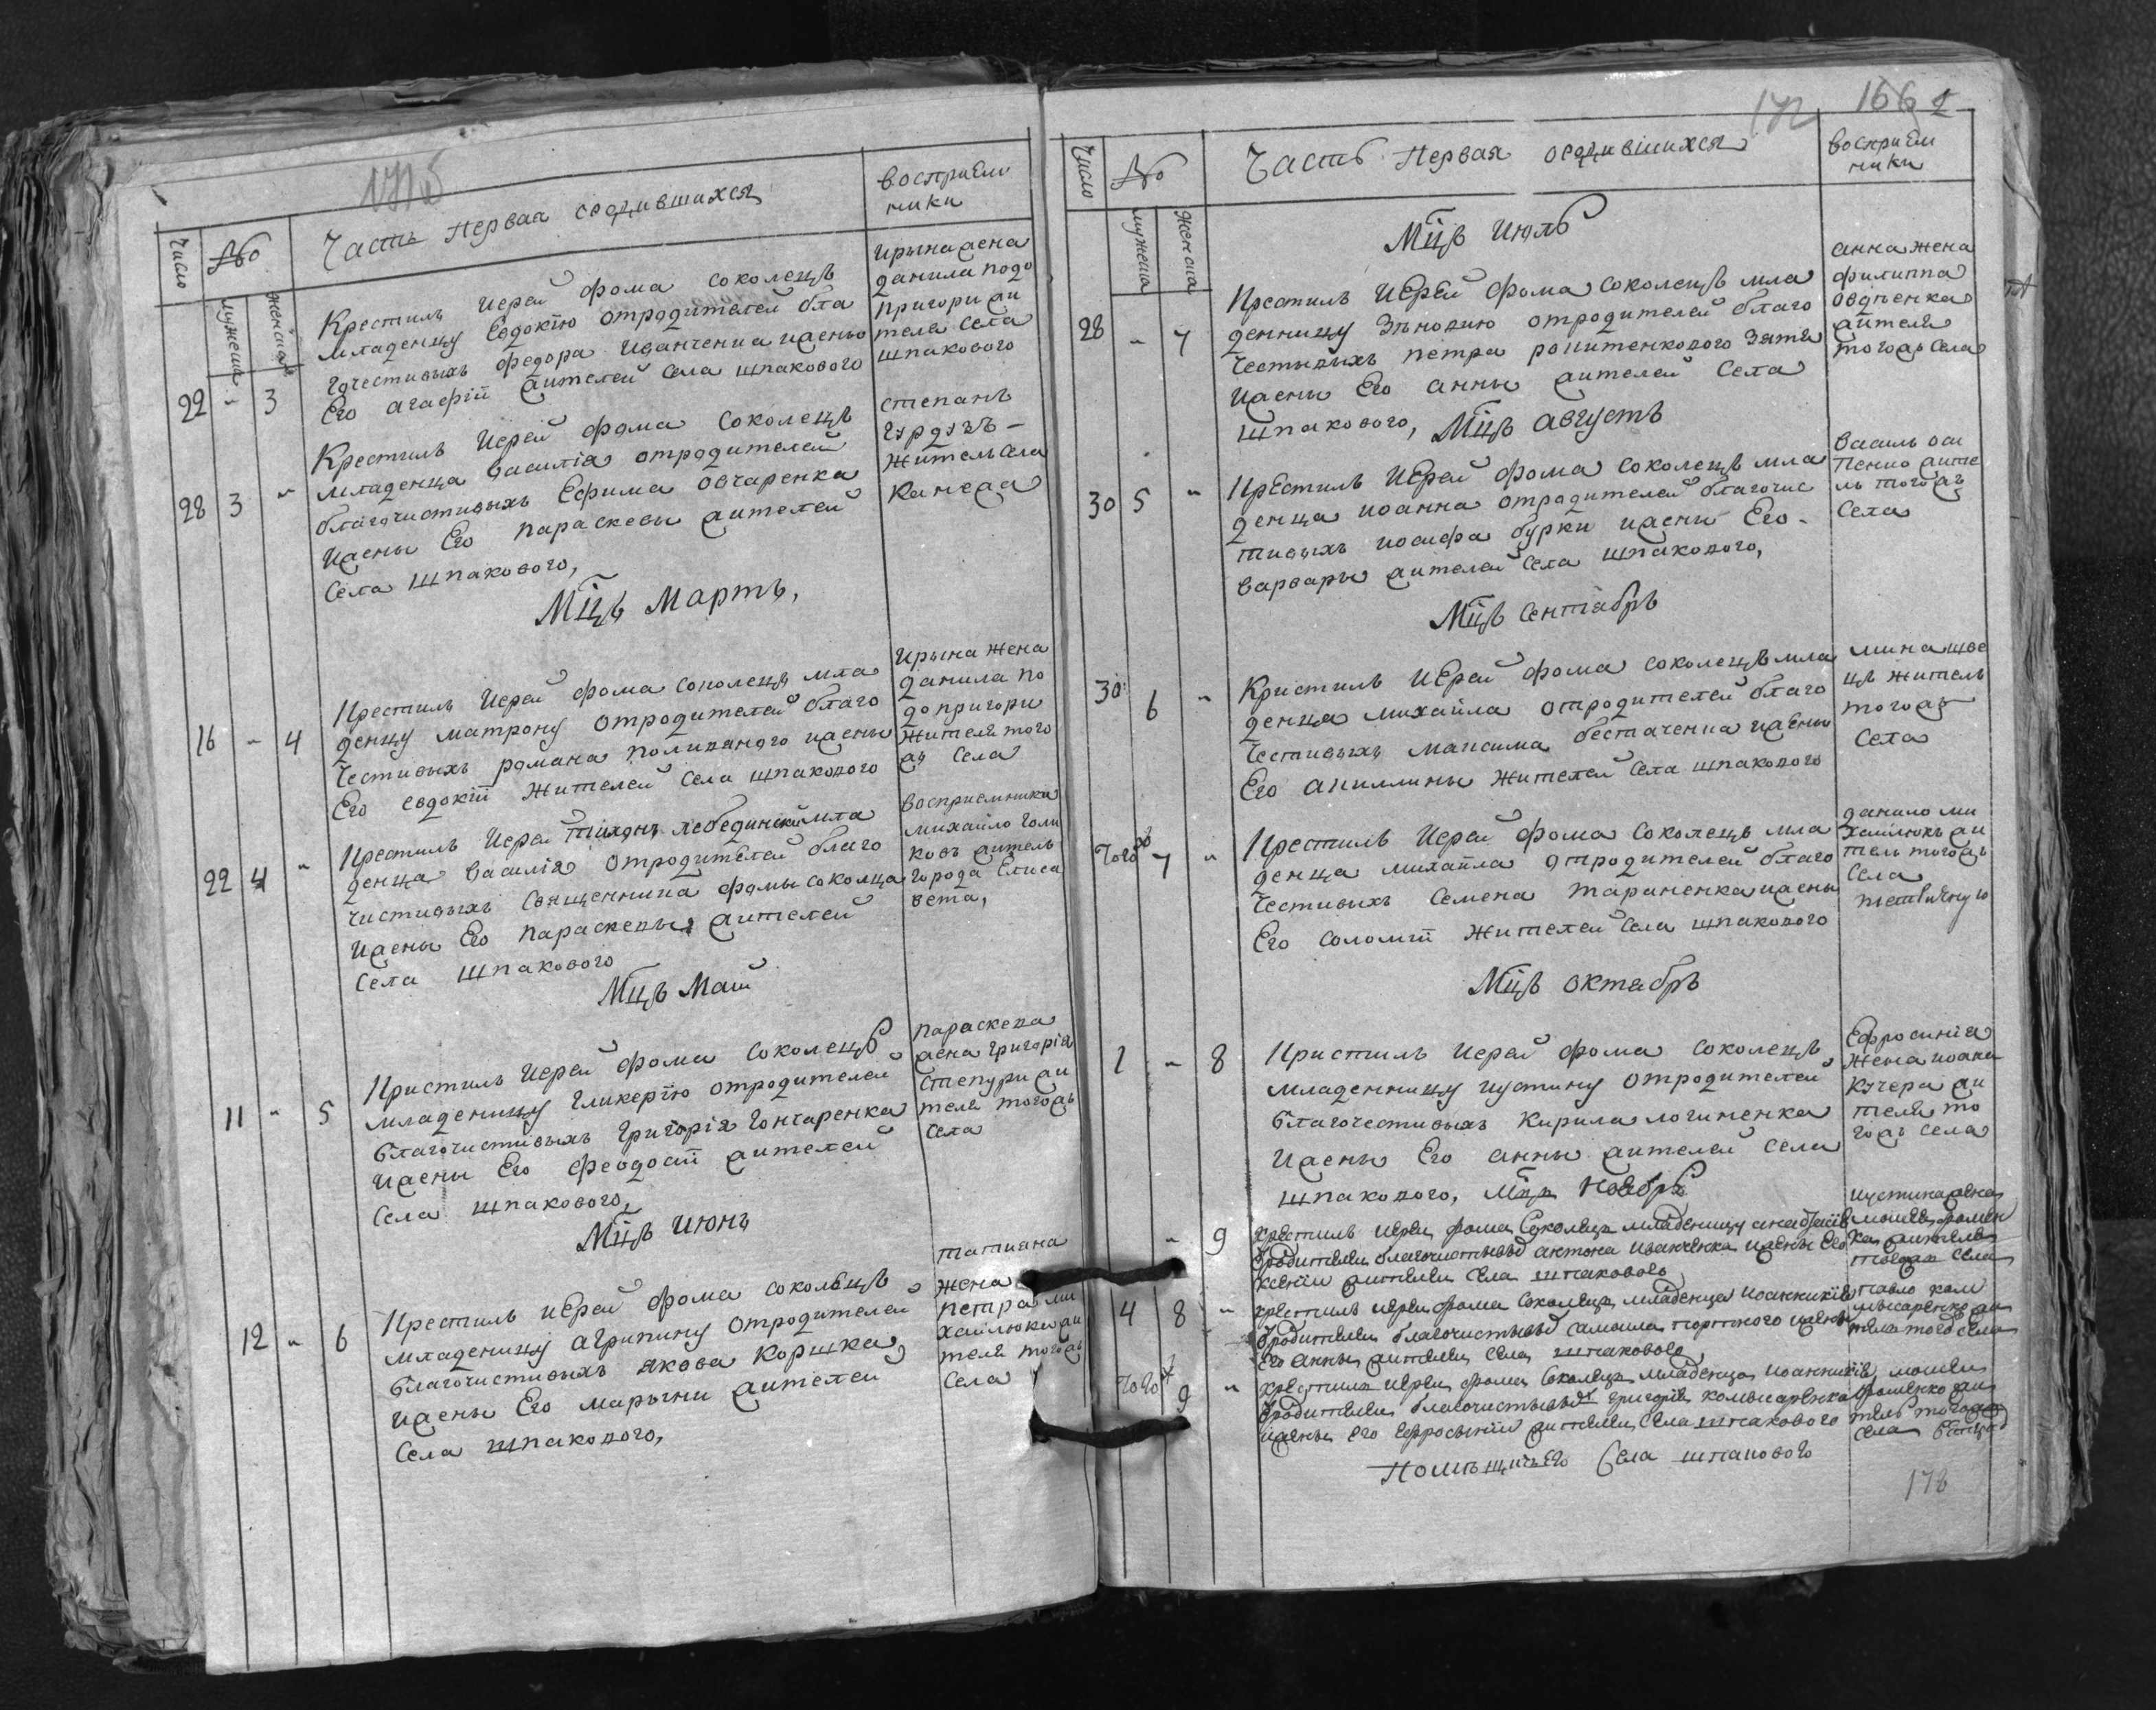 Часть первая ородившихся
восприем
ники
Число
№
мужеска
женска
Крестилъ Иерей Фома Соколецъ
младенцу Евдокїю отродителей бла
гочестивыхъ федора Иванченка ижены
Его агафїи жителей села шпакового
22 - 3
Ирына жена
данила подо
пригори жи
теля села
шпакового
Крестилъ Иерей фома Соколецъ
младенца василїя отродителей
благочистивыхъ Ефима овчаренка
ижены Его параскевы жителей
села шпакового,
28 3 -
степанъ
гурдузъ -
житель села
канежа
Мцъ Мартъ,
Крестилъ Иерей фома Соколецъ мла
денцу матрону отродителей благо
честивыхъ романа поливаного ижены
Его евдокїи жителей села шпакового
16 - 4
Ирына жена
данила по
до пригори
жителя того
жъ села
Крестилъ Иерей Тихонъ лебединскїй мла
денца василїя отродителей благо
чистивыхъ священника фомы соколца
ижены Его параскевы жителей
села шпакового
22 4 -
восприемника
михайло голи
ковъ житель
города Елиса
вета,
Мцъ Маїй
Кристилъ Иерей фома соколецъ
младеницу гликерїю отродителей
благочистивыхъ григорїя гончаренка
ижены Его феодосїи жителей
села шпакового,
11 - 5
параскева
жена григорїя
степури жи
теля тогожъ
села
Мцъ Июнь
Крестилъ иЕрей фома соколЕцъ
младеницу агрипину отродителей
благочистивыхъ якова коршка
ижены Его марыны жителей
села шпакового,
12 - 6
татиана
жена
петра ми
хайлюка жи
теля тогожъ
села
172 166
Часть первая ородившихся
восприем
ники
Число
№
мужеска
женска
Мцъ Июль
Крестилъ ИЕрей фома соколецъ мла
денницу Зѣновию отродителей благо
честывыхъ петра ронитенкового зятя
ижены Его анны жителей села
шпакового,
28 - 7
анна жена
филиппа
овдѣенка
жителя
тогожъ села
Мцъ августъ
КрЕстилъ ИЕрей фома соколецъ мла
денца иоанна отродителей благочис
тивыхъ иосифа бурки ижены Его -
варвары жителей села шпакового,
30 5 -
васыль
пенко жите
ль тогожъ
села
Мцъ сентябрь
Кристилъ ИЕрей фома соколецъ мла
денца михайла отродителей благо
честивыхъ максима бестаченка ижены
Его акиллины жителей села шпакового
30 6 -
мина шве
цъ житель
тогожъ
села
Крестилъ Иерей фома соколецъ мла
денца михайла отродителей благо
честивыхъ семена тараненка ижены
Его соломїи жителей села шпакового
тогожъ 7 -
данило ми
хайлюкъ жи
тель тогожъ
села
Мцъ октябрь
Кристилъ Иерей фома соколецъ
младенницу иустину отродителей
благочестивыхъ кирила логиненка
ижены Его анны жителей села
шпакового, Мцъ Ноябрь
1 - 8
Ефросинїя
жена иоана
кучера жи
теля то
гожъ села
- 9
крестилъ иерей фома соколецъ младеницу анастасїю
ѿродителей благочистивыхъ антона иванченка ижены Его
ксенїи жителей села шпакового
иустина жена
моисея фомен
ка жителя
тогожъ села
4 8 -
крестилъ иерей фома соколецъ младенца иоанникїя
ѿродителей благочистивыхъ самоила портного ижены
Его анны жителей села шпакового
павло ком
мысаренко жи
тель того села
тогожъ 9 -
крестилъ иерей фома соколецъ младенца иоанникїя
ѿродителей благочистивыхъ григорїя комысаренка
ижены Его Ефросынїи жителей села шпакового
моисей
фоменко жи
тель тогожъ
села
помѣщичьего села шпакового
178